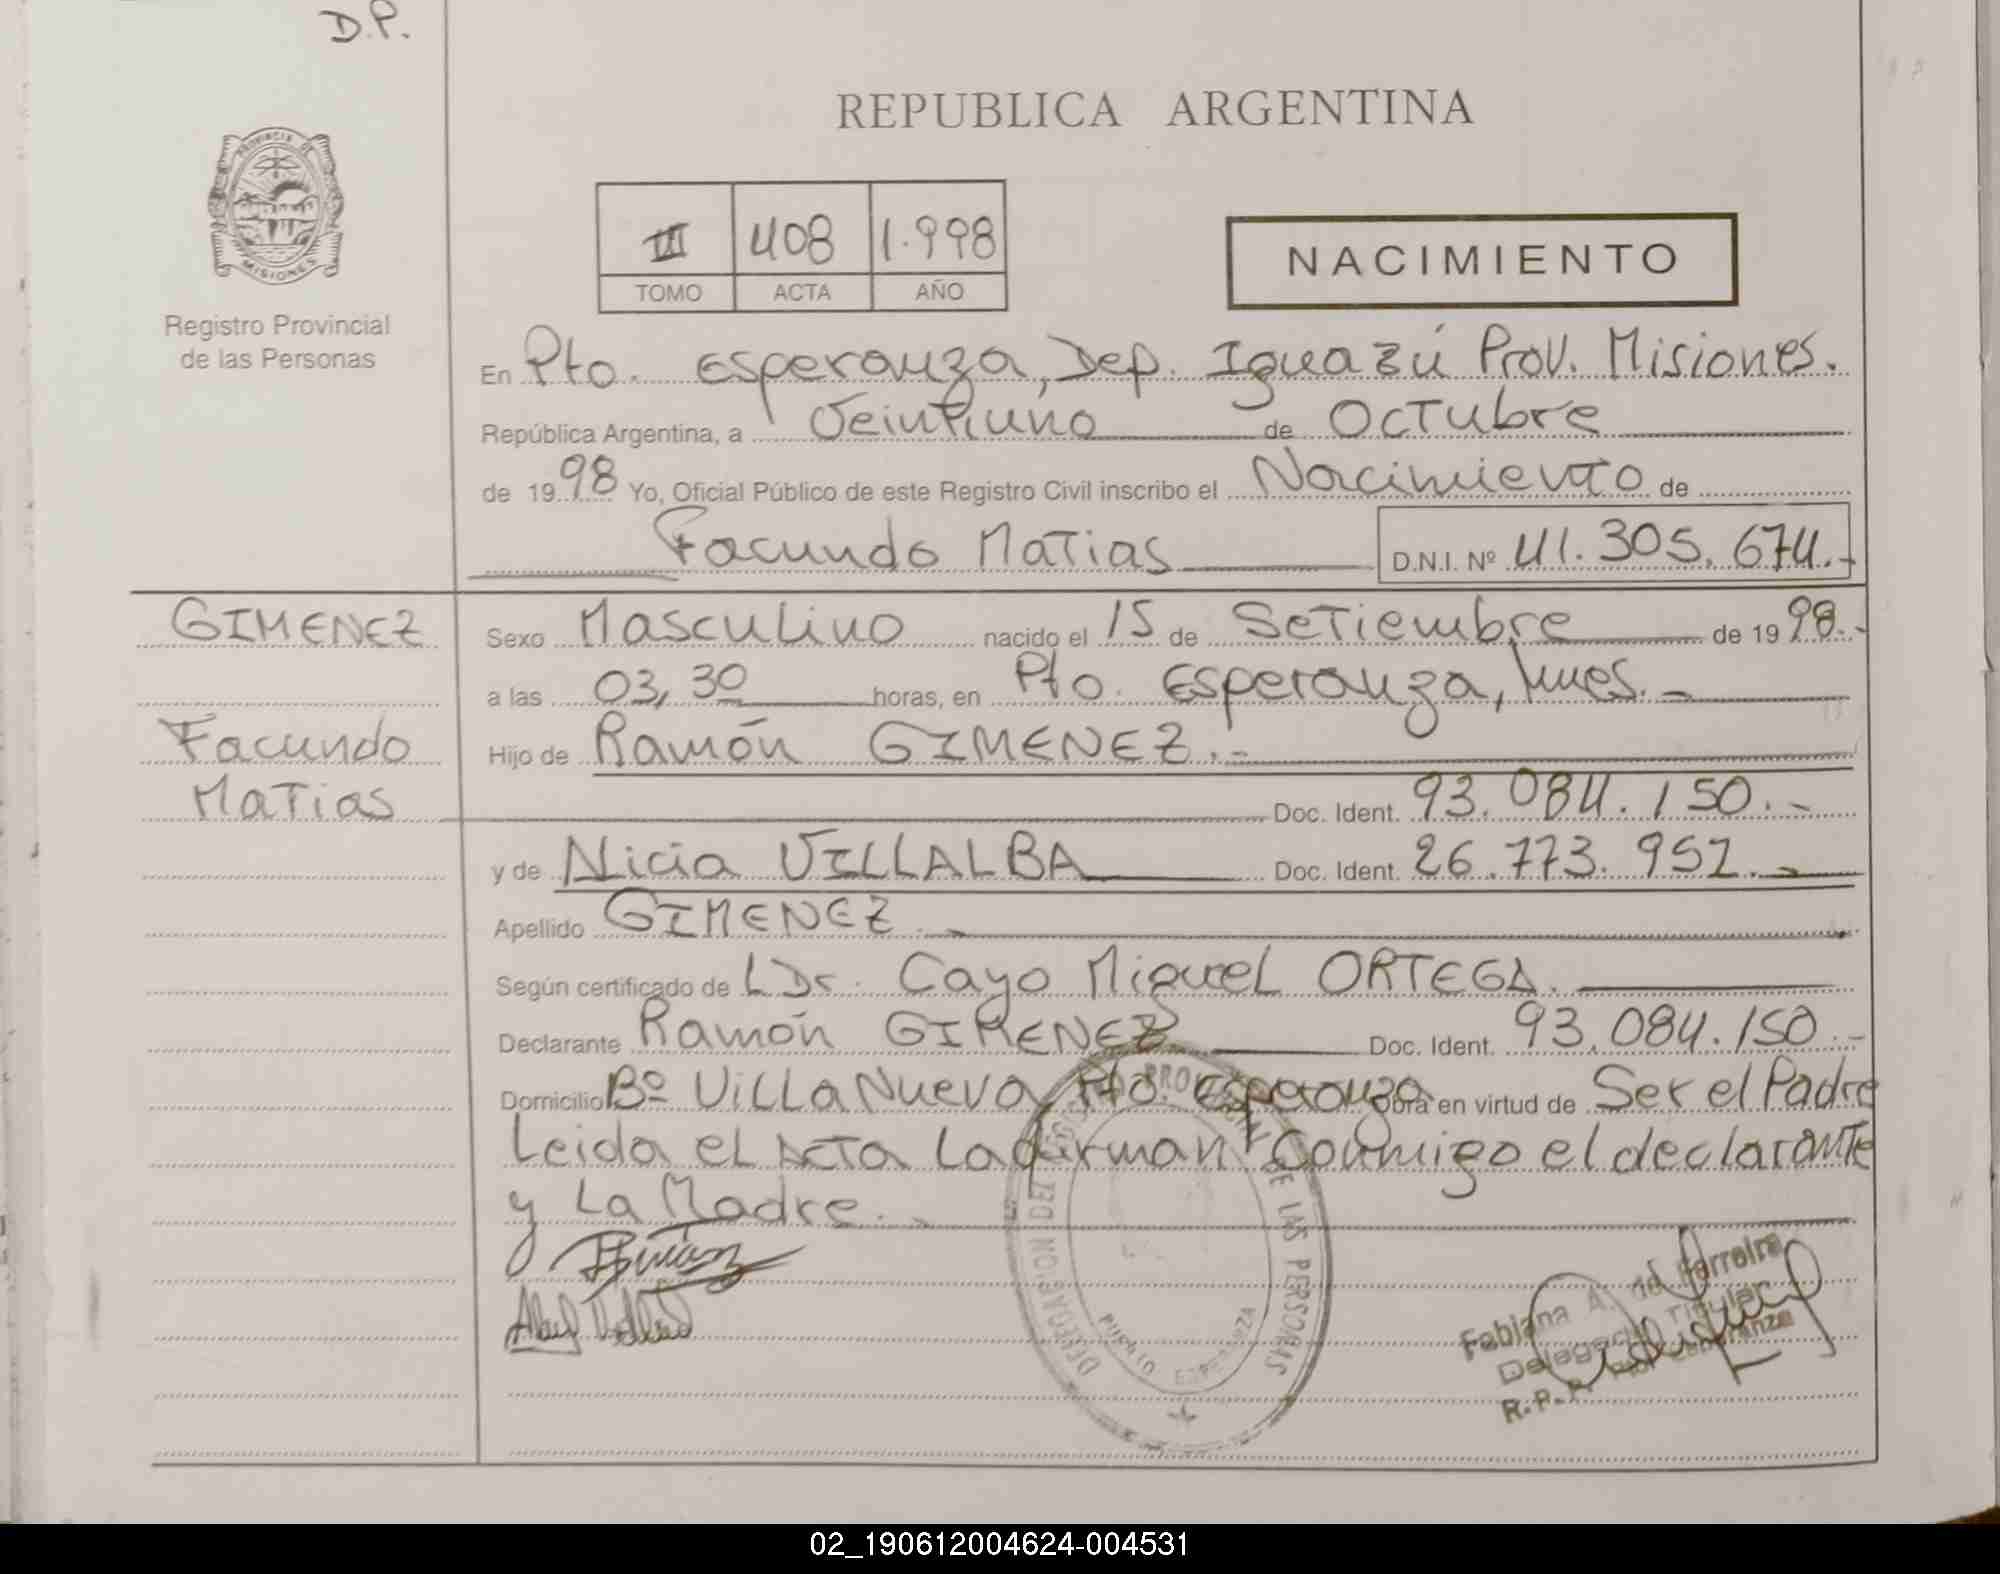 D.P.
REPUBLICA ARGENTINA
PROVINCIA DE
MISIONES
Registro Provincial
de las Personas
III 408 1.998
TOMO ACTA AÑO
NACIMIENTO
En Pto. Esperanza, Dep. Iguazú Prov. Misiones.
República Argentina, a Veintiuno de Octubre
de 1998 Yo, Oficial Público de este Registro Civil inscribo el Nacimiento de
Facundo Matias D.N.I. Nº 41.305.674.-
GIMENEZ
Facundo
Matias
Sexo Masculino nacido el 15 de Setiembre de 1998.-
a las 03,30 horas, en Pto. Esperanza, Mnes.-
Hijo de Ramón GIMENEZ.-
Doc. Ident. 93.084.150.-
y de Alicia VILLALBA Doc. Ident. 26.773.952.-
Apellido GIMENEZ.-
Según certificado de L Dr. Cayo Miguel ORTEGA.
Declarante Ramón GIMENEZ Doc. Ident. 93.084.150.-
Domicilio Bº Villa Nueva Pto. Esperanza Obra en virtud de Ser el Padre
Leida el Acta La firman Conmigo el declarante
y La Madre.-
REGISTRO PROVINCIAL DE LAS PERSONAS
DELEGACION DEL
PUERTO ESPERANZA
Fabiana A. de Ferreira
Delegada Titular
R.P.P. Pto. Esperanza
02_190612004624-004531